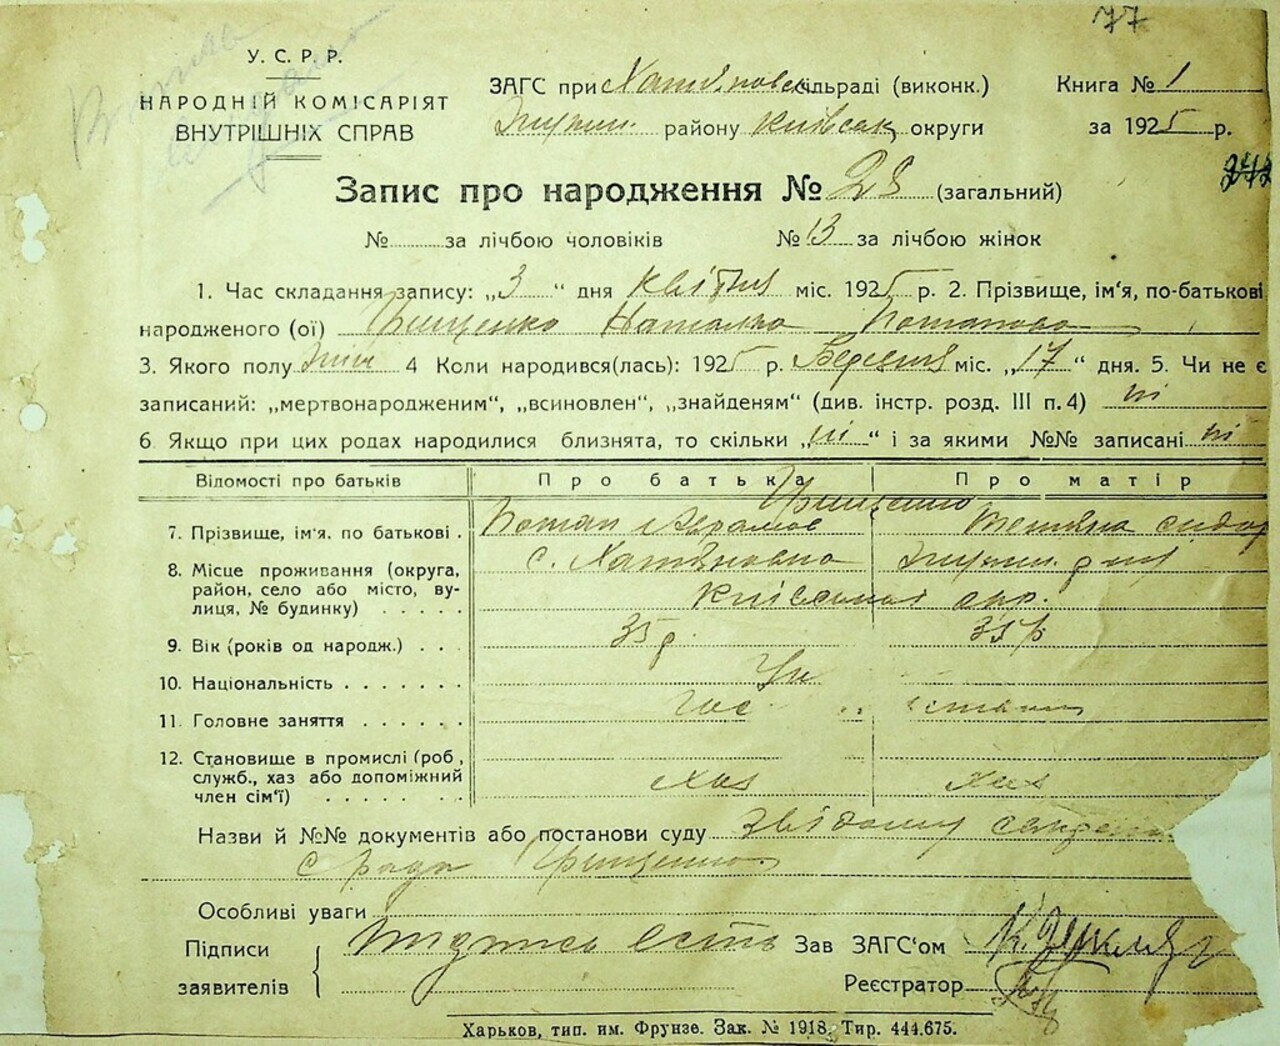 77
У. С. Р. Р.
НАРОДНІЙ КОМІСАРІЯТ
ВНУТРІШНІХ СПРАВ
ЗАГС при сільраді (виконк.)
району Київськ округи
Книга № 1
за 1925 р.
242
Запис про народження № 28 (загальний)
№ за лічбою чоловіків № 13 за лічбою жінок
1. Час складання запису: „3" дня Квітня міс. 1925 р. 2. Прізвище, ім'я, по-батькові
народженого (ої) Грищенко Наталка Потапова
3. Якого полу жін 4 Коли народився(лась): 1925 р. Березня міс. „17" дня. 5. Чи не є
записаний: „мертвонародженим", „всиновлен", „знайденям" (див. інстр. розд. III п. 4) ні
6 Якщо при цих родах народилися близнята, то скільки „ні" і за якими №№ записані ні
Відомості про батьків Про батька Про матір
Грищенко
7. Прізвище, ім'я. по батькові . Потап Аврамов Тетяна Сидор
8. Місце проживання (округа, с.
район, село або місто, ву-
лиця, № будинку) . . . . . Київської окр.
9. Вік (років од народж.) . . . 35 р. 35 р
10. Національність . . . . . . . Ук
11. Головне заняття . . . . . .
12. Становище в промислі (роб,
служб., хаз або допоміжний Хаз Хаз
член сім'ї) . . . . . . .
Назви й №№ документів або постанови суду
Грищенко
Особливі уваги
Підписи
заявителів
подпись есть
Зав ЗАГС'ом
Реєстратор
Харьков, тип. им. Фрунзе. Зак. № 1918. Тир. 444.675.